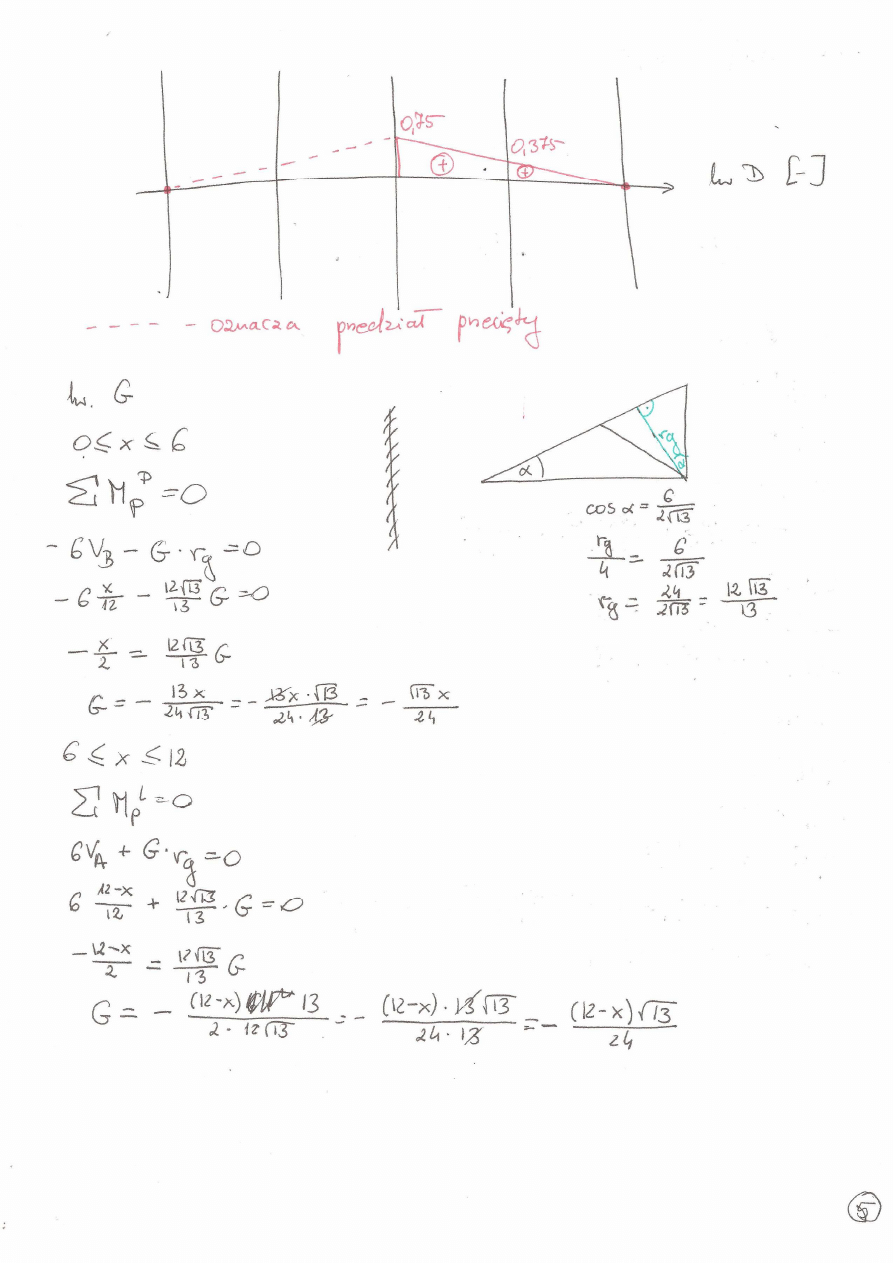 0,75
0,375
+
+
lw D [-]
---- - oznacza przedział przecięty
lw. G
0 ≤ x ≤ 6
∑ M_P^D = 0
- 6V_B - G · r_g = 0
- 6 x/12 - 12√13/13 G = 0
- x/2 = 12√13/13 G
G = - 13x/24√13 = - 13x·√13/24·13 = - √13 x/24
6 ≤ x ≤ 12
∑ M_P^L = 0
6V_A + G · r_g = 0
6 12-x/12 + 12√13/13 · G = 0
- 12-x/2 = 12√13/13 G
G = - (12-x) 13/2·12√13 = - (12-x)·13√13/24·13 = - (12-x)√13/24
α
r_g
α
cos α = 6/2√13
r_g/4 = 6/2√13
r_g = 24/2√13 = 12√13/13
5